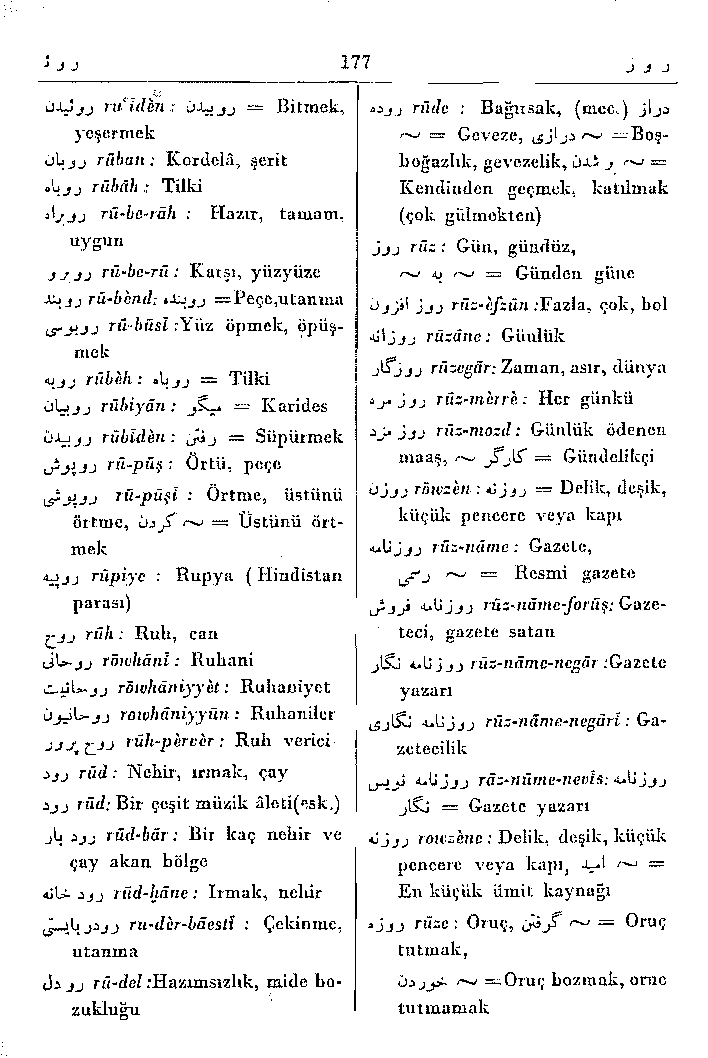 روئـ 177 روز
روئیدن ru'īdèn : روییدن = Bitmek,
yeşermek
روبان rūban : Kordelâ, şerit
روباه rūbāh : Tilki
روبراه rū-be-rāh : Hazır, tamam,
uygun
روبرو rū-be-rū : Karşı, yüzyüze
روبند rū-bènd: روبنده =Peçe,utanma
روبوسی rū-būsī :Yüz öpmek, öpüş-
mek
روبه rūbèh : روباه = Tilki
روبیان rūbiyān : میگو = Karides
روبیدن rūbīdèn : رفتن = Süpürmek
روپوش rū-pūş : Örtü, peçe
روپوشی rū-pūşī : Örtme, üstünü
örtme, کردن ~ = Üstünü ört-
mek
روپیه rūpiye : Rupya (Hindistan
parası)
روح rūh : Ruh, can
روحانی rōwhānī : Ruhani
روحانیت rōwhāniyyèt : Ruhaniyet
روحانیون rowhāniyyūn : Ruhaniler
روح پرور rūh-pèrvèr : Ruh verici
رود rūd : Nehir, ırmak, çay
رود rūd: Bir çeşit müzik âleti(esk.)
رود بار rūd-bār : Bir kaç nehir ve
çay akan bölge
رود خانه rūd-hāne : Irmak, nehir
رودربایستی ru-dèr-bāestī : Çekinme,
utanma
رو دل rū-del :Hazımsızlık, mide bo-
zukluğu
روده rūde : Bağırsak, (mec.) دراز
~ = Geveze, درازی ~ =Boş-
boğazlık, gevezelik, ر شدن ~ =
Kendinden geçmek, katılmak
(çok gülmekten)
روز rūz : Gün, gündüz,
~ به ~ = Günden güne
روز افزون rūz-èfzūn :Fazla, çok, bol
روزانه rūzāne : Günlük
روزگار rūzegār: Zaman, asır, dünya
روز مره rūz-mèrrè : Her günkü
روز مزد rūz-mozd : Günlük ödenen
maaş, کارگر ~ = Gündelikçi
روزن rōwzèn : روزنه = Delik, deşik,
küçük pencere veya kapı
روزنامه rūz-nāme : Gazete,
رسمی ~ = Resmi gazete
روزنامه فروش rūz-nāme-forūş: Gaze-
teci, gazete satan
روزنامه نگار rūz-nāme-negār :Gazete
yazarı
روزنامه نگاری rūz-nāme-negārī : Ga-
zetecilik
روزنامه نویس rūz-nāme-nevīs: روزنامه
نگار = Gazete yazarı
روزنه rowzène : Delik, deşik, küçük
pencere veya kapı, امید ~ =
En küçük ümit kaynağı
روزه rūze : Oruç, گرفتن ~ = Oruç
tutmak,
خوردن ~ =Oruç bozmak, oruc
tutmamak